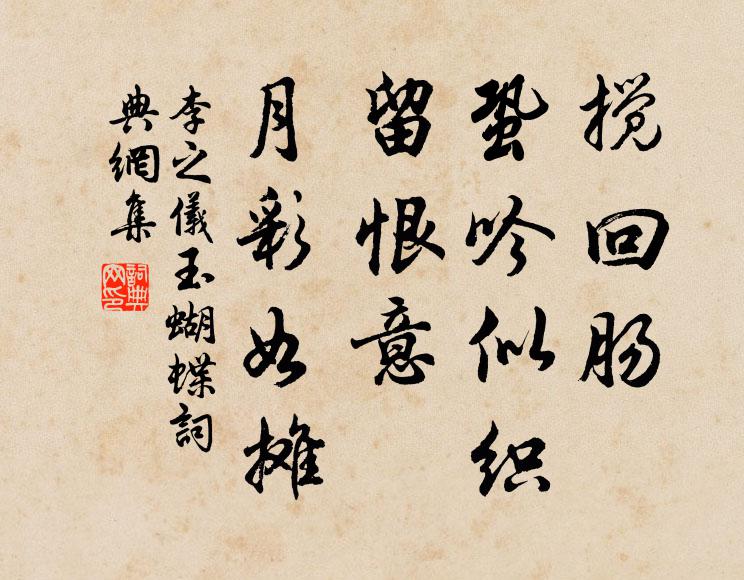 搅回肠
蛩吟似织
留恨意
月彩如摊
李之儀玉蝴蝶詞
典網集
詞典
网印